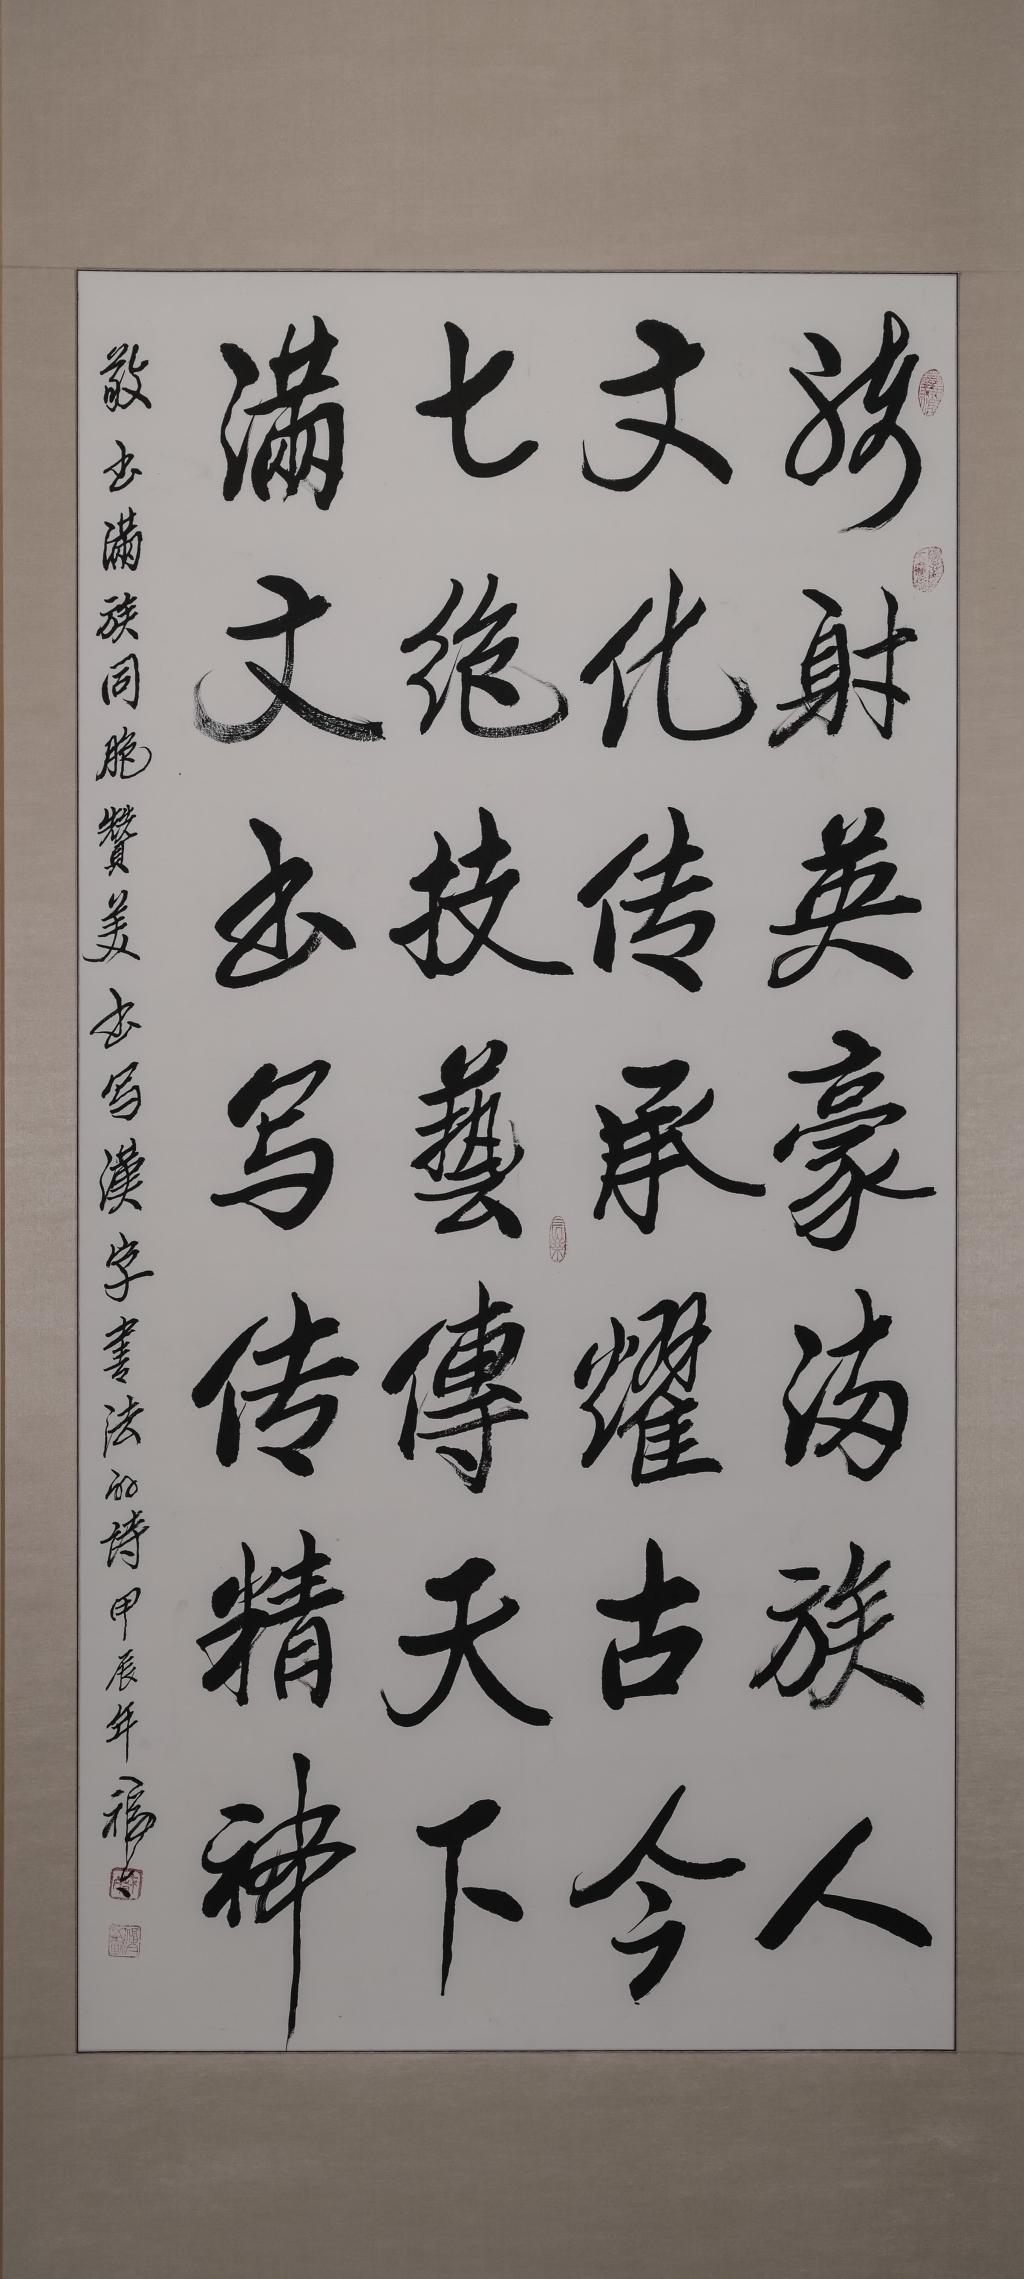 骑射英豪满族人
文化传承耀古今
七绝技藝傳天下
满文书写传精神
敬书满族同胞赞美书写漢字書法的诗甲辰年